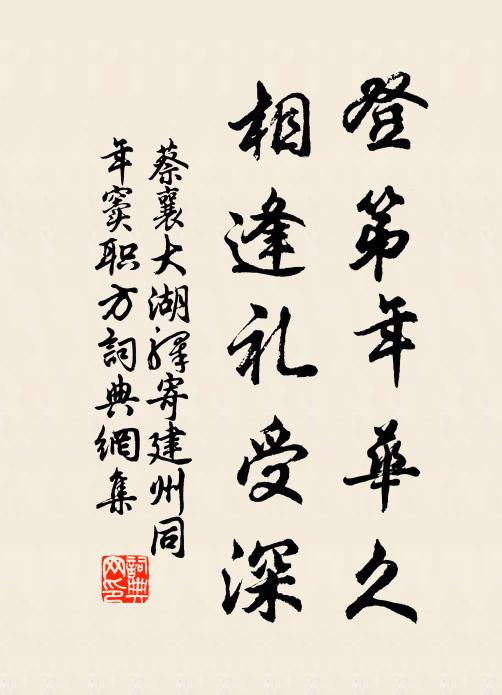 登第年华久
相逢礼受深
蔡襄大湖驿寄建州同
年窦职方词典網集
詞典
网印